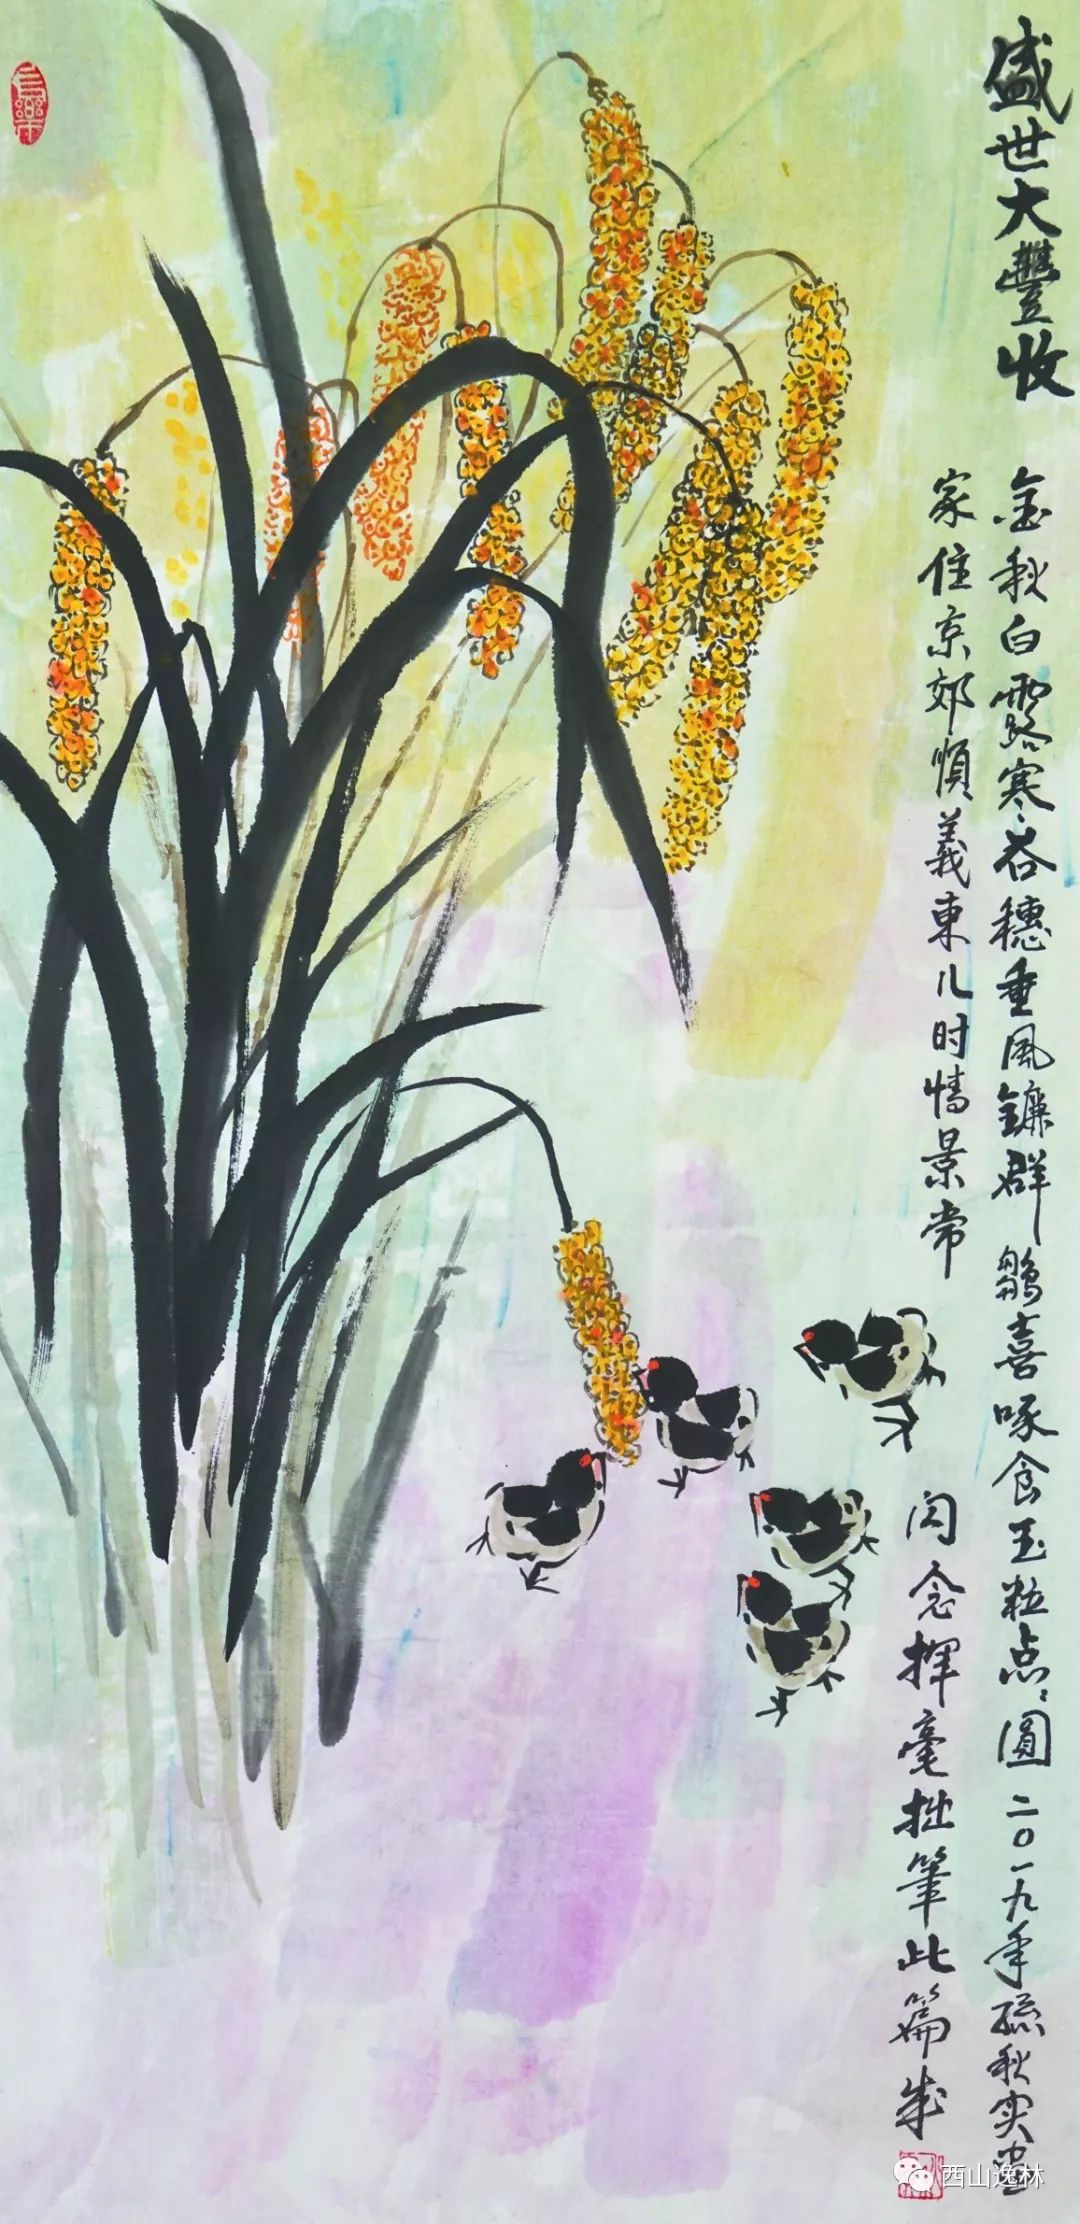 盛世大豐收
金秋白露寒、谷穗垂風鐮群雛喜啄食玉粒点、圓 二〇一九年孫秋实画
家住京郊順義東儿时情景常
闪念揮毫拙筆此篇成
長樂
西山逸林